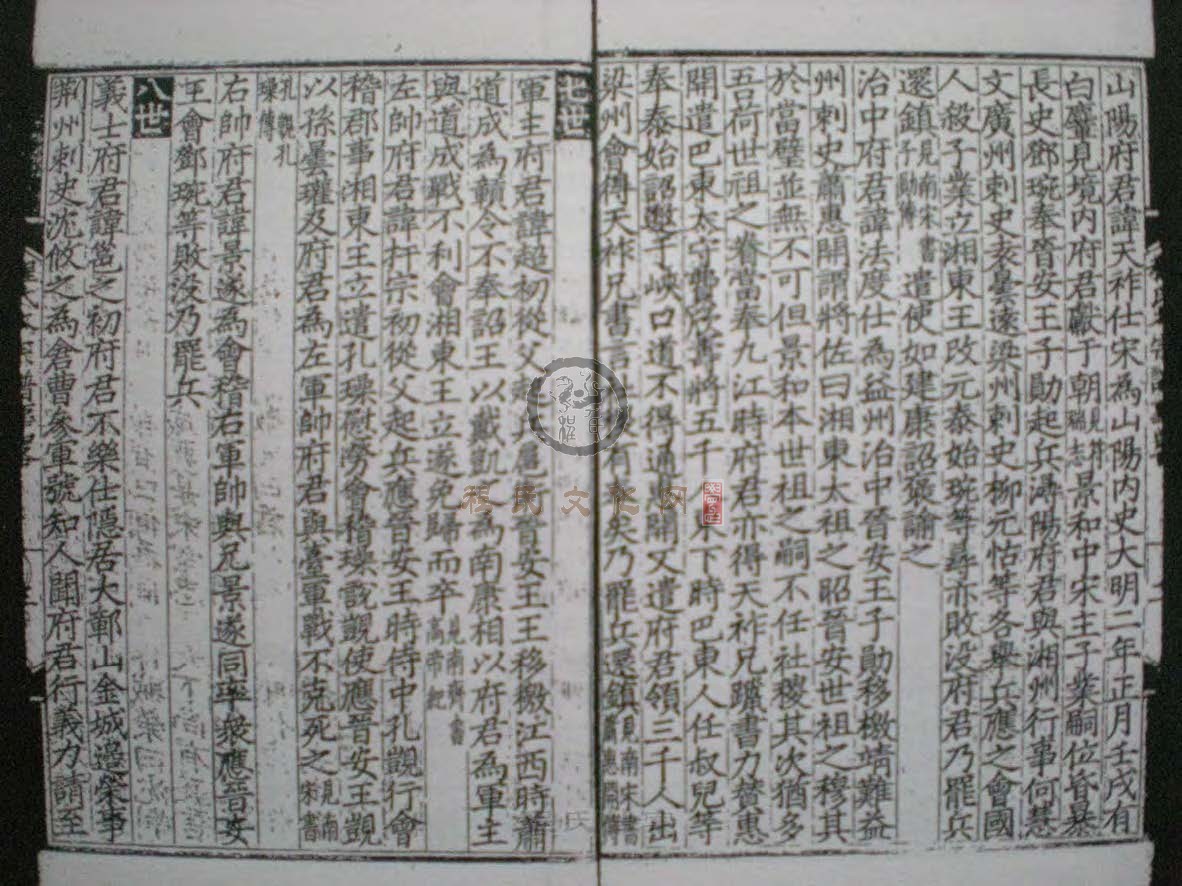 山陽府君諱天祚仕宋為山陽内史大明二年正月壬戌有
白麞見境内府君獻于朝見符瑞志景和中宋主子業嗣位昏暴
長史鄧琬奉晉安王子勛起兵潯陽府君與湘州行事何慧
文廣州刺史袁曇遠梁州刺史柳元怙等各舉兵應之會國
人殺子業立湘東王改元泰始琬等尋亦敗没府君乃罷兵
還鎮見南宋書子勛傳遣使如建康詔褒諭之
治中府君諱法度仕為益州治中晉安王子勛移檄靖難益
州刺史蕭惠開謂將佐曰湘東太祖之昭晉安世祖之穆其
於當璧並無不可但景和本世祖之嗣不任社稷其次猶多
吾荷世祖之眷當奉九江時府君亦得天祚兄䟽書力替惠
開遣巴東太守費欣壽將五千人東下時巴東人任叔兒等
奉泰始詔邀于峽口道不得通惠開又遣府君領三千人出
梁州會得天祚兄書言 有 矣乃罷兵還鎮見南宋書蕭惠開傳
七世
軍主府君諱超初從父 兵 晉安王王移檄江西時蕭
道成為贛令不奉詔王以戴凱之為南康相以府君為軍主
與道成戰不利會湘東王立遂免歸而卒見南齊書高帝紀
左帥府君諱扞宗初從父起兵應晉安王時侍中孔覬行會
稽郡事湘東王立遣孔璪慰勞會稽璪説覬使應晉安王覬
以孫曇瓘及府君為左軍帥府君與臺軍戰不克死之見南宋書
孔覬孔璪傳
右帥府君諱景遂為會稽右軍帥與兄景遂同率衆應晉安
王會鄧琬等敗没乃罷兵
八世
義士府君諱邕之初府君不樂仕隱居大鄣山金城邉榮事
荆州刺史沈攸之為倉曹參軍號知人聞府君行義力請至
程氏文化网